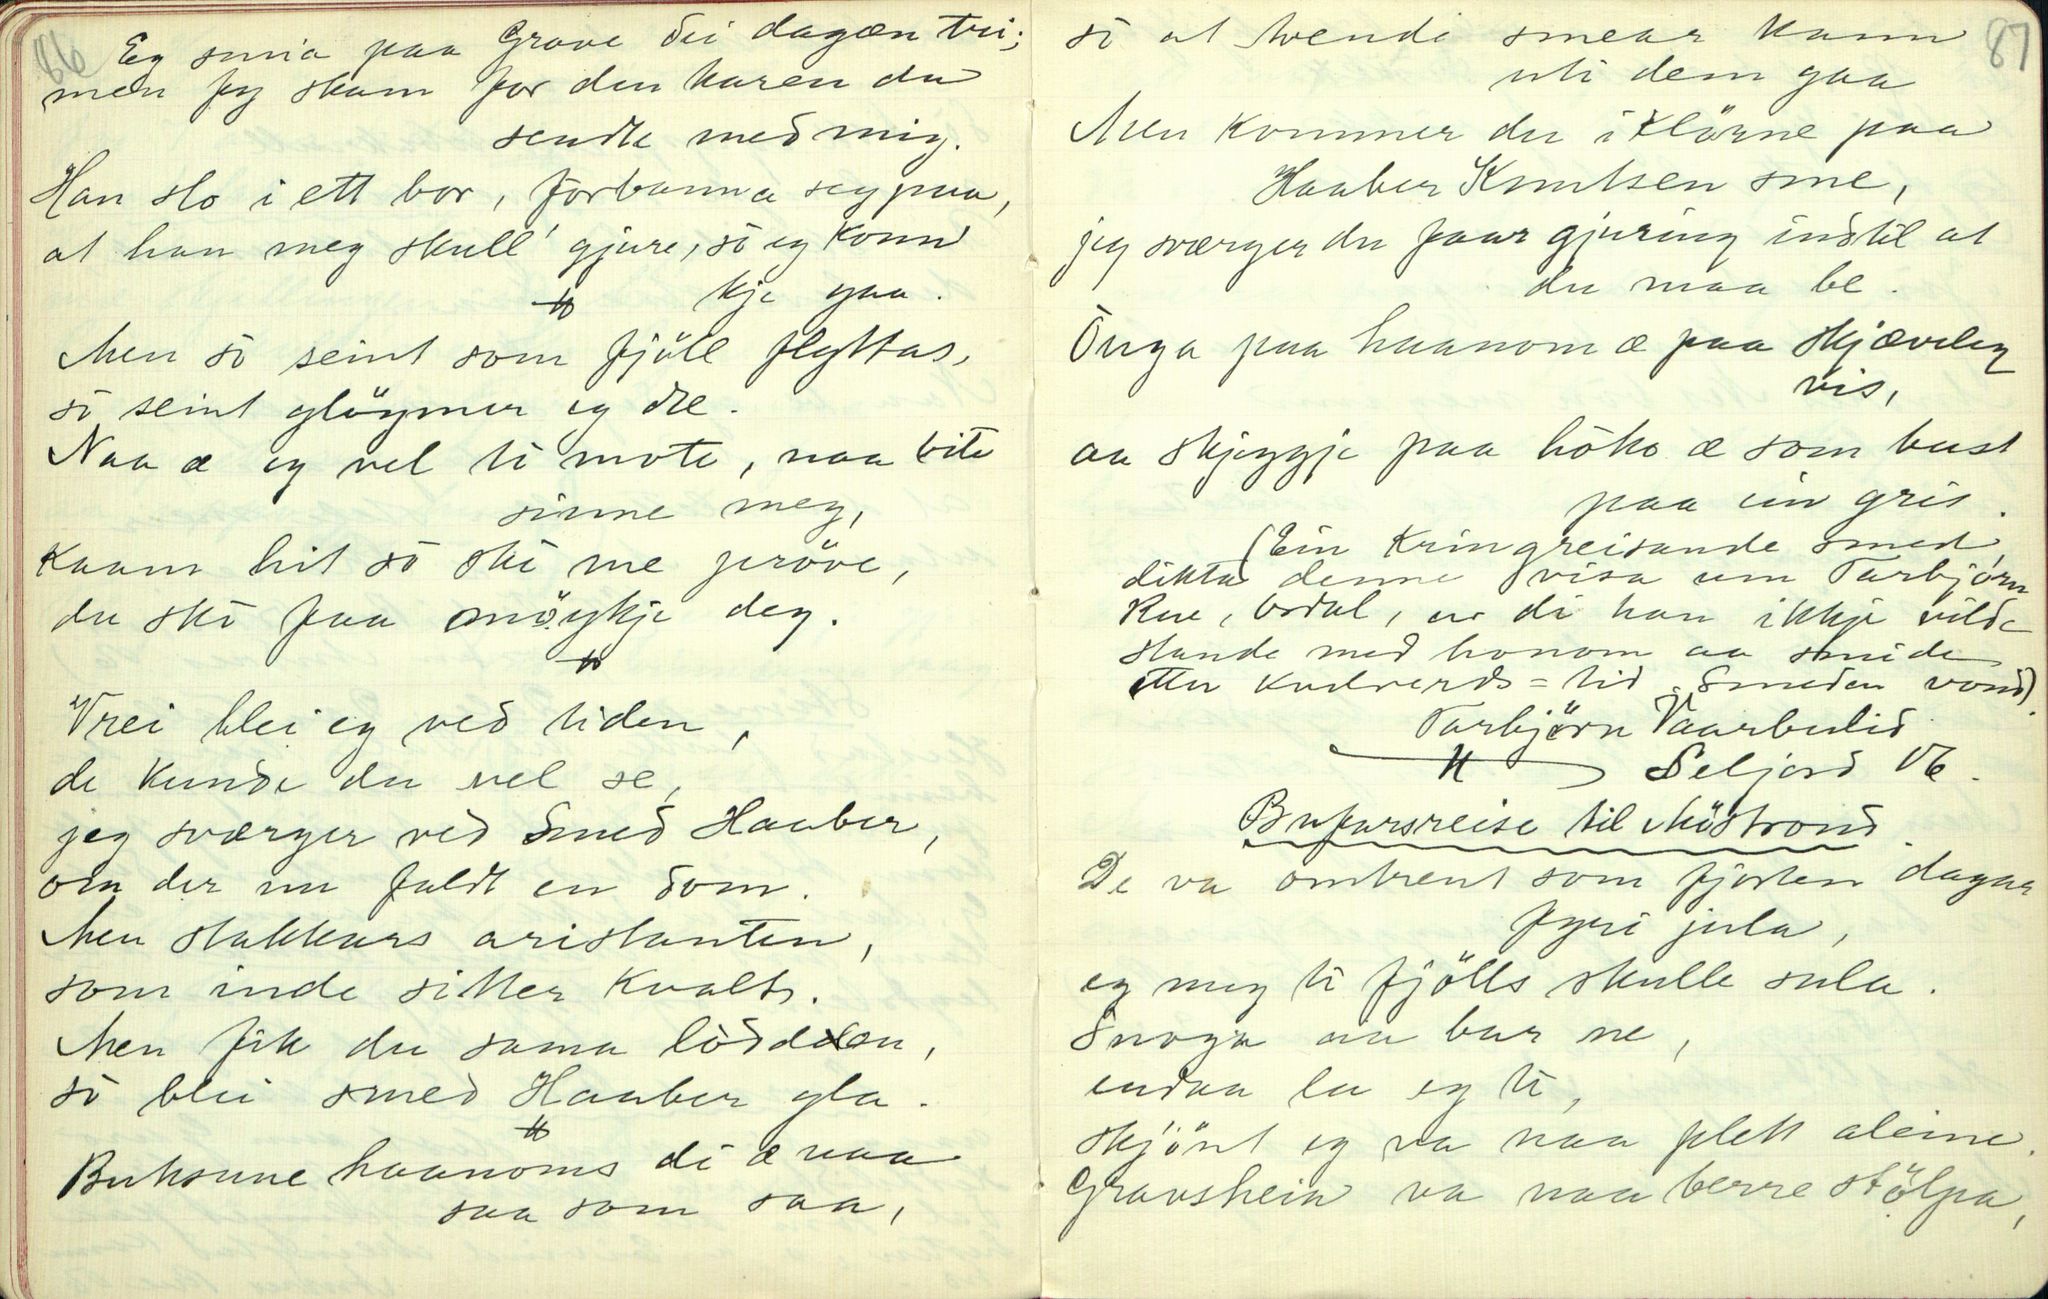 86
Eg smia paa Grave dei dagæn tri;
men fy skam for den karen du
sendte med mig.
Han slo i ett bor, forbanna seg paa,
at han meg skull' gjure, sò eg konn
kje gaa.
Men sò seint som fjöll flyttas,
sò seint glöymer eg dæ.
Naa æ eg vel ti mote, naa bite
sinne meg,
Kaam hit sò ski me pröve,
du ski faa möykje deg.
Vrei blei eg ved tiden,
de kunde du vel se,
jeg sværger ved Smed Haaber,
om der nu faldt en dom.
Men stakkars aristanten,
som inde sitter kvalt.
Men fik du sama lödden,
sò blei smed Haaber gla.
Buksune haanoms di æ naa
saa som saa,
87
sò at tvende smear kann
uti dem gaa
Men kommer du i klörne paa
Haaber Knutsen sme,
jeg sværger du faar gjuring indtil at
du maa be.
Ouga paa haanom æ paa skjæveleg
vis,
aa skjeggje paa höko æ som bust
paa ein gris.
(Ein kringreisande smed,
dikta denne visa um Tarbjörn
Rue, Ordal, av di han ikkje vilde
stande med honom aa smide
etter kvelverds=tid. Smeden vond).
Tarbjörn Vaarbulid
Seljord V6.
Bufarsreise til Möstrond.
De va omtrent som fjorten dagar
fyri jula,
eg meg ti fjölls skulle sula.
Snoga aa bar ne,
endaa la eg ti,
skjönt eg va naa plett aleine.
Gravsheia va naa berre stölpa,